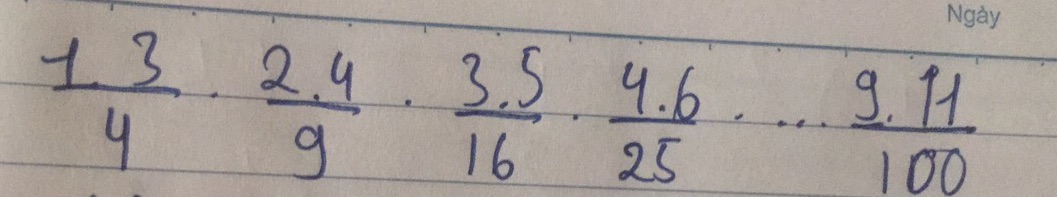 Ngày
1.3/4 . 2.4/9 . 3.5/16 . 4.6/25 . ... 9.11/100